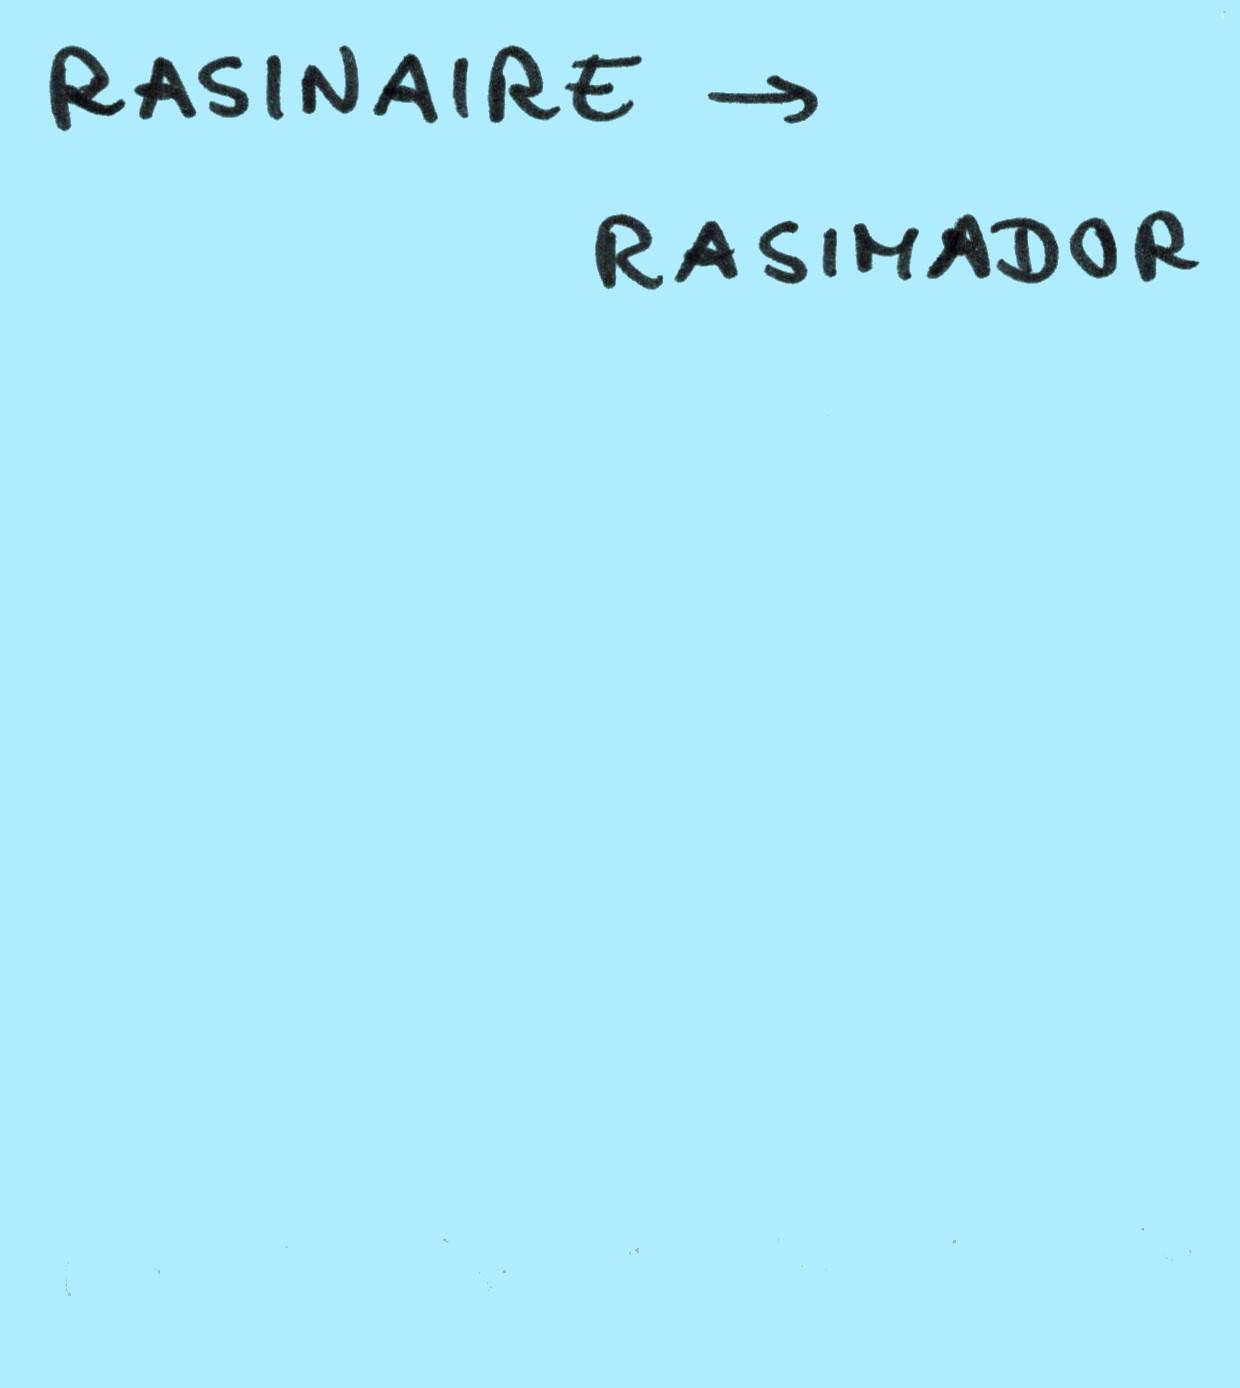 RASINAIRE →
RASINADOR